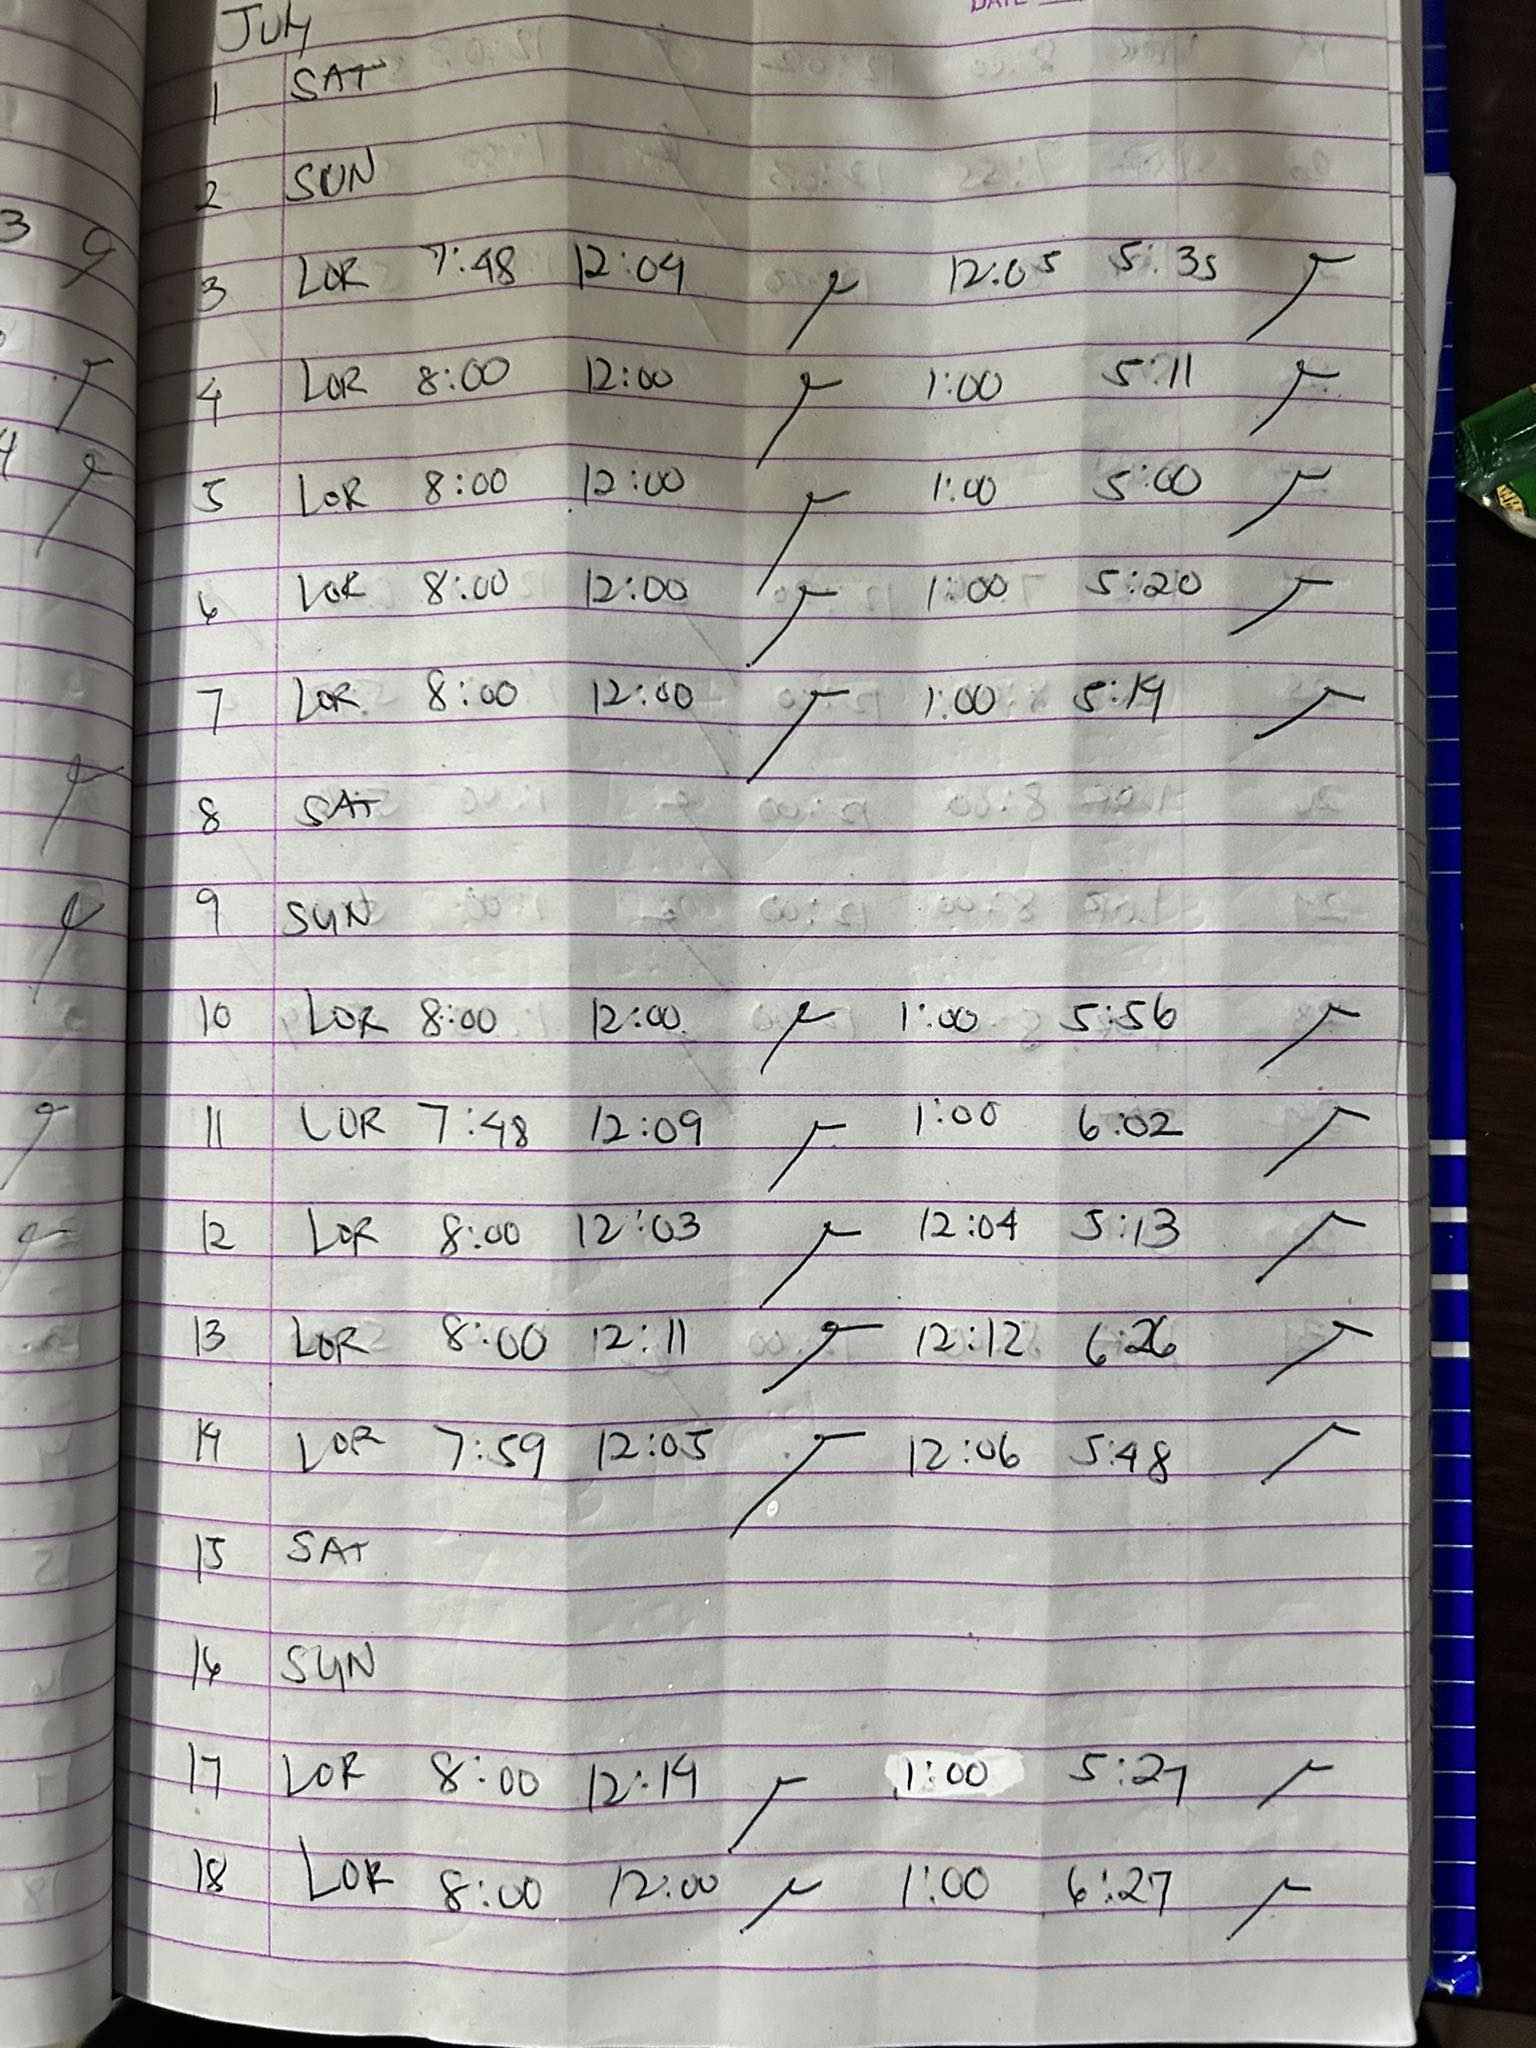 DATE
July
1 SAT
2 SUN
3 LOR 7:48 12:04 12:05 5:35
4 LOR 8:00 12:00 1:00 5:11
5 LOR 8:00 12:00 1:00 5:00
6 LOR 8:00 12:00 1:00 5:20
7 LOR 8:00 12:00 1:00 5:19
8 SAT
9 SUN
10 LOR 8:00 12:00 1:00 5:56
11 LOR 7:48 12:09 1:00 6:02
12 LOR 8:00 12:03 12:04 5:13
13 LOR 8:00 12:11 12:12 6:26
14 LOR 7:59 12:05 12:06 5:48
15 SAT
16 SUN
17 LOR 8:00 12:19 1:00 5:27
18 LOR 8:00 12:00 1:00 6:27